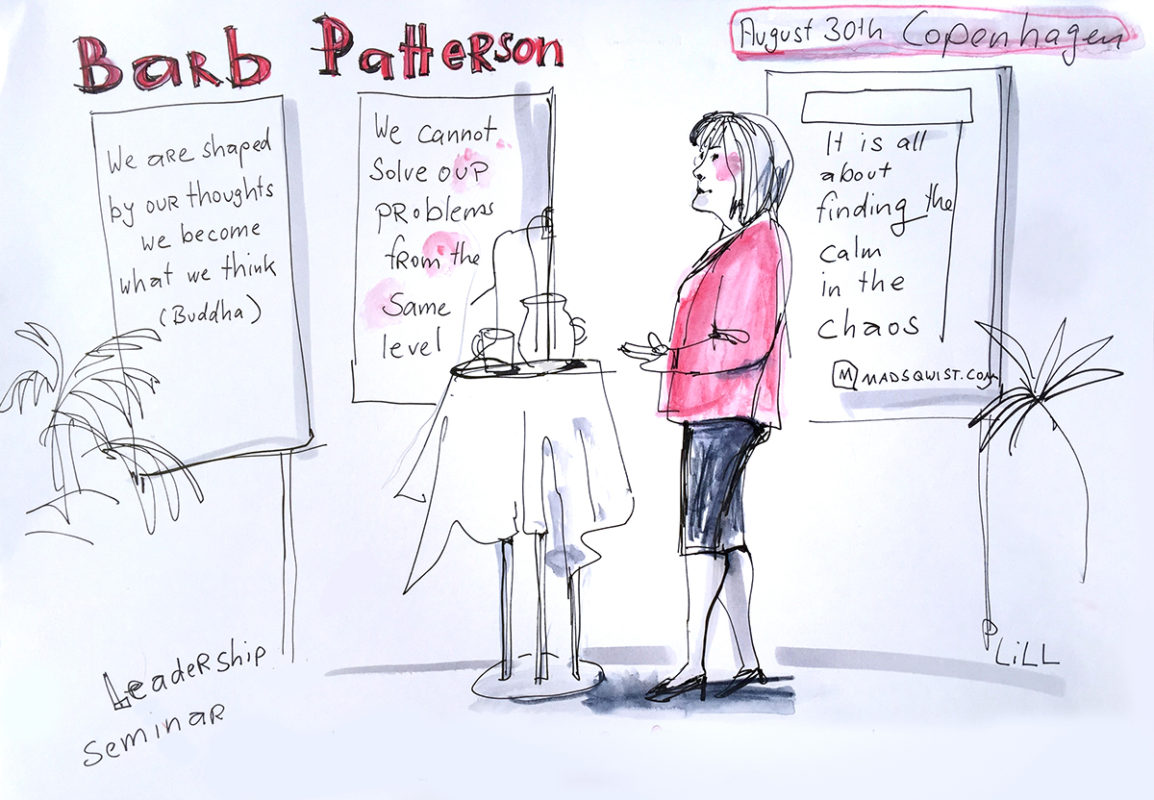 Barb Patterson
August 30th Copenhagen
We are shaped
by our thoughts
we become
what we think
(Buddha)
We cannot
Solve our
problems
from the
Same
level
It is all
about
finding the
calm
in the
chaos
M MADSQWIST.COM
Leadership
Seminar
LiLL